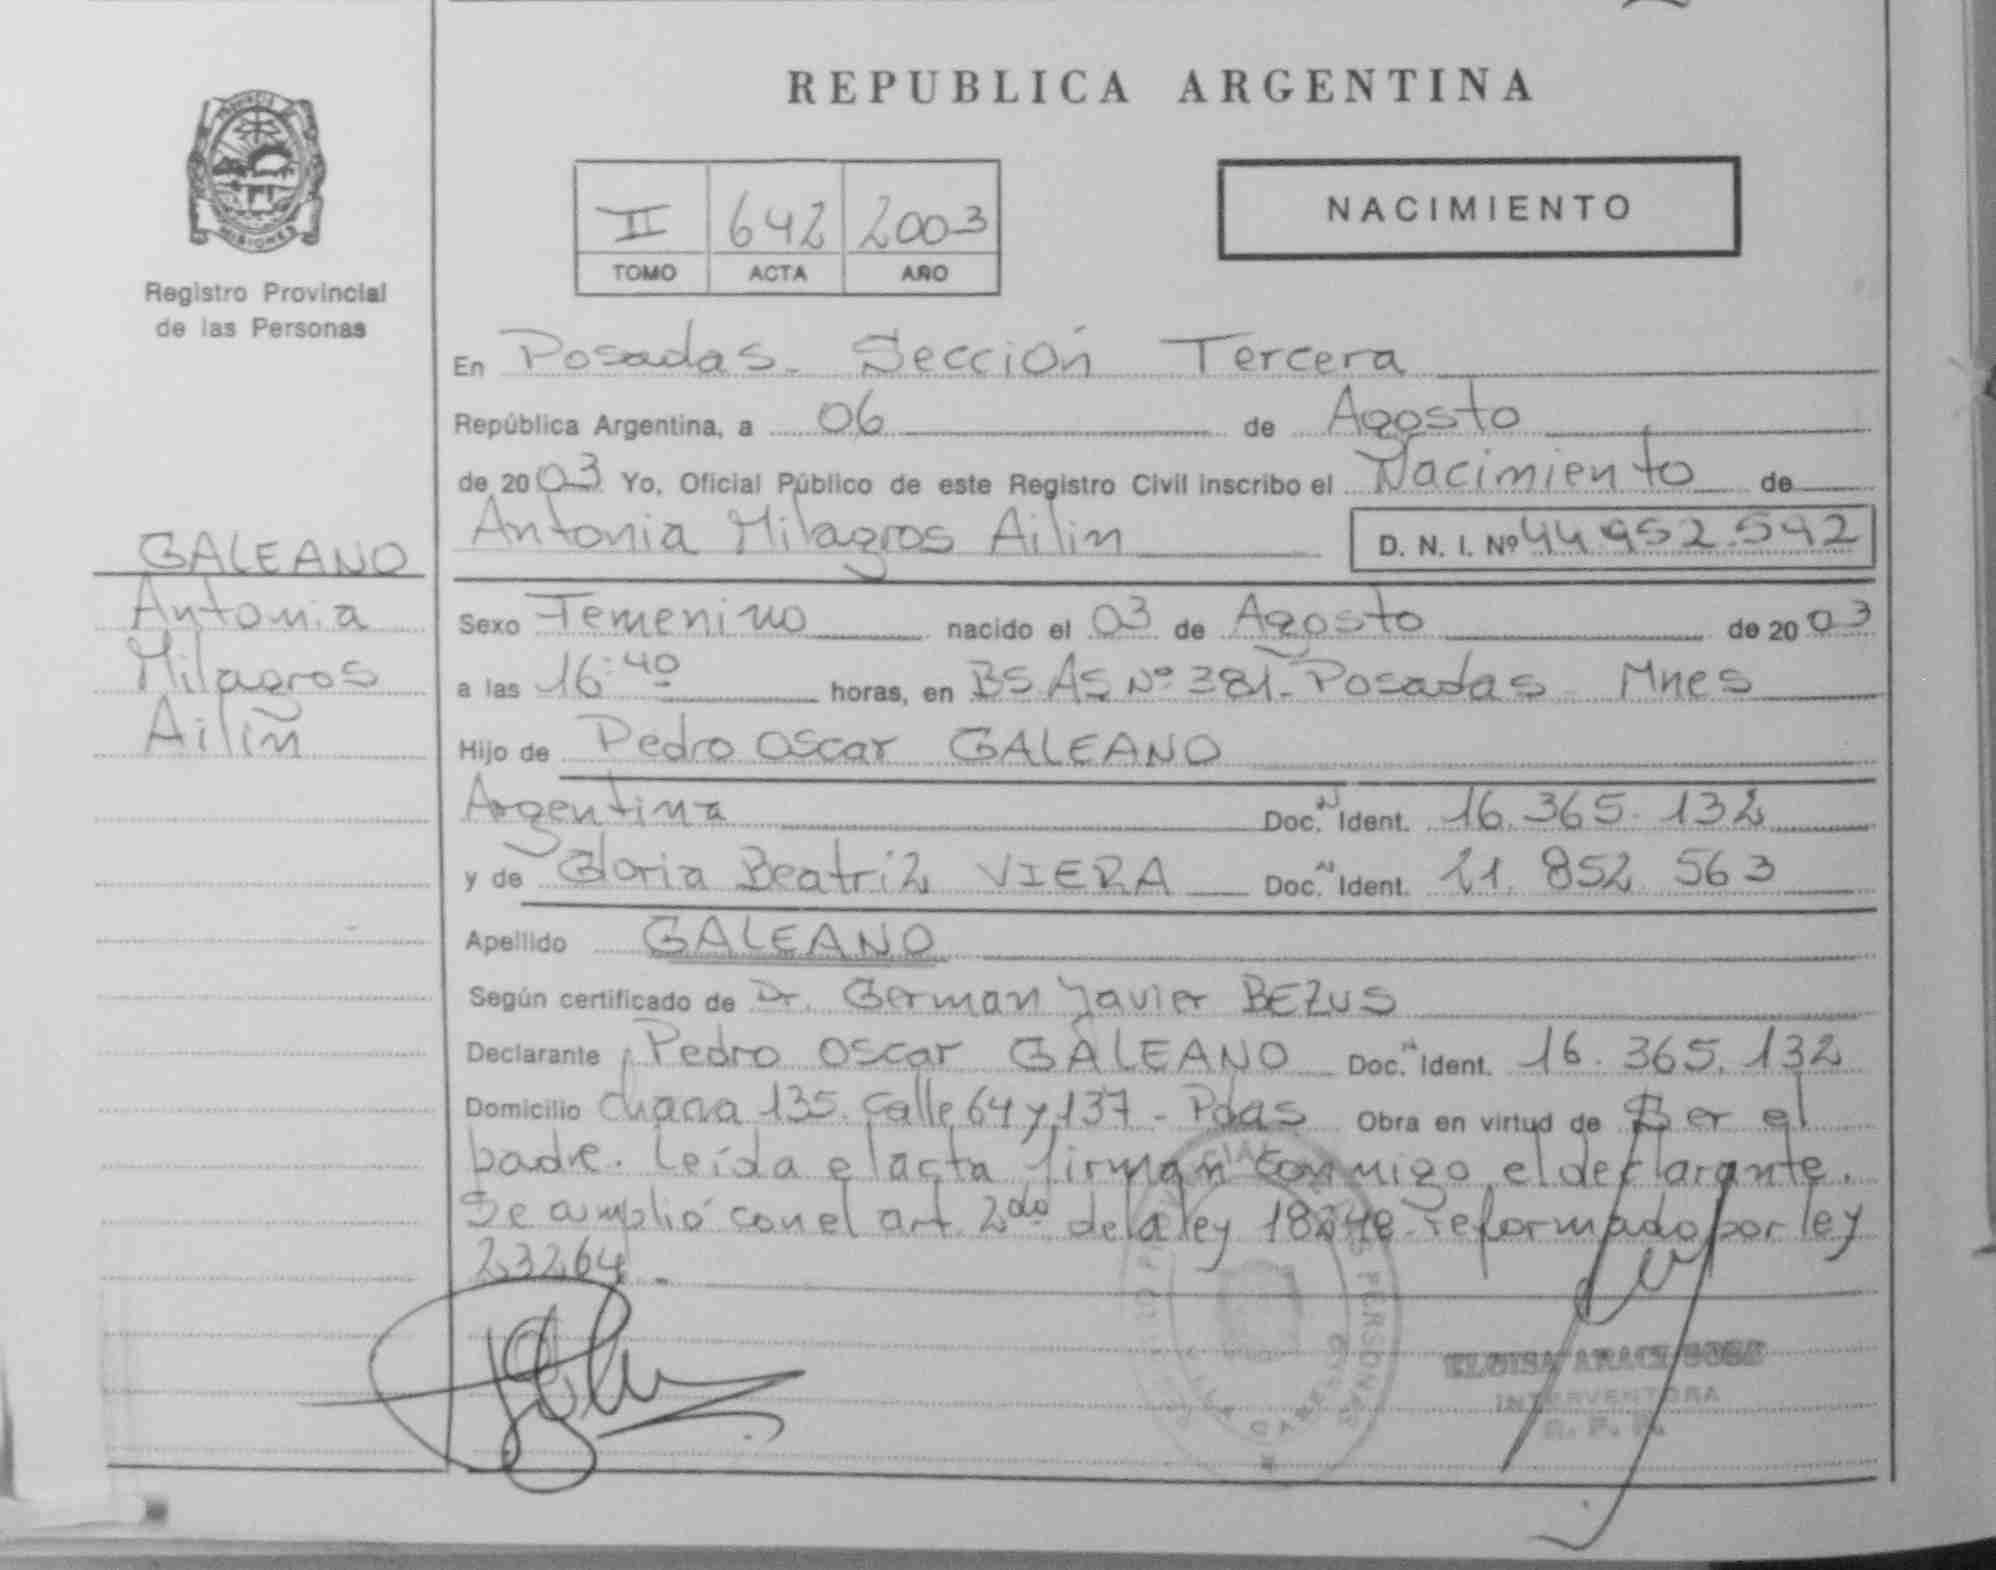 REPUBLICA ARGENTINA
MISIONES
Registro Provincial
de las Personas
II 642 2003
TOMO ACTA AÑO
NACIMIENTO
En Posadas. Sección Tercera
República Argentina, a 06 de Agosto
de 2003 Yo, Oficial Público de este Registro Civil inscribo el Nacimiento de
Antonia Milagros Ailin D. N. I. Nº 44.952.592
GALEANO
Antonia
Milagros
Ailin
Sexo Femenino nacido el 03 de Agosto de 2003
a las 16:40 horas, en BS AS Nº 381. Posadas Mnes
Hijo de Pedro Oscar GALEANO
Argentina Doc. Ident. 16.365.132
y de Gloria Beatriz VIERA Doc. Ident. 21.852.563
Apellido GALEANO
Según certificado de Dr. German Javier BEZUS
Declarante Pedro Oscar GALEANO Doc. Ident. 16.365.132
Domicilio Chacra 135. Calle 64 y 137 - Pdas Obra en virtud de Ser el
padre. Leída el acta firman conmigo el declarante.
Se cumplió con el art. 2do de la ley 18248 reformado por ley
23264.
INTERVENTORA
R. P. P.